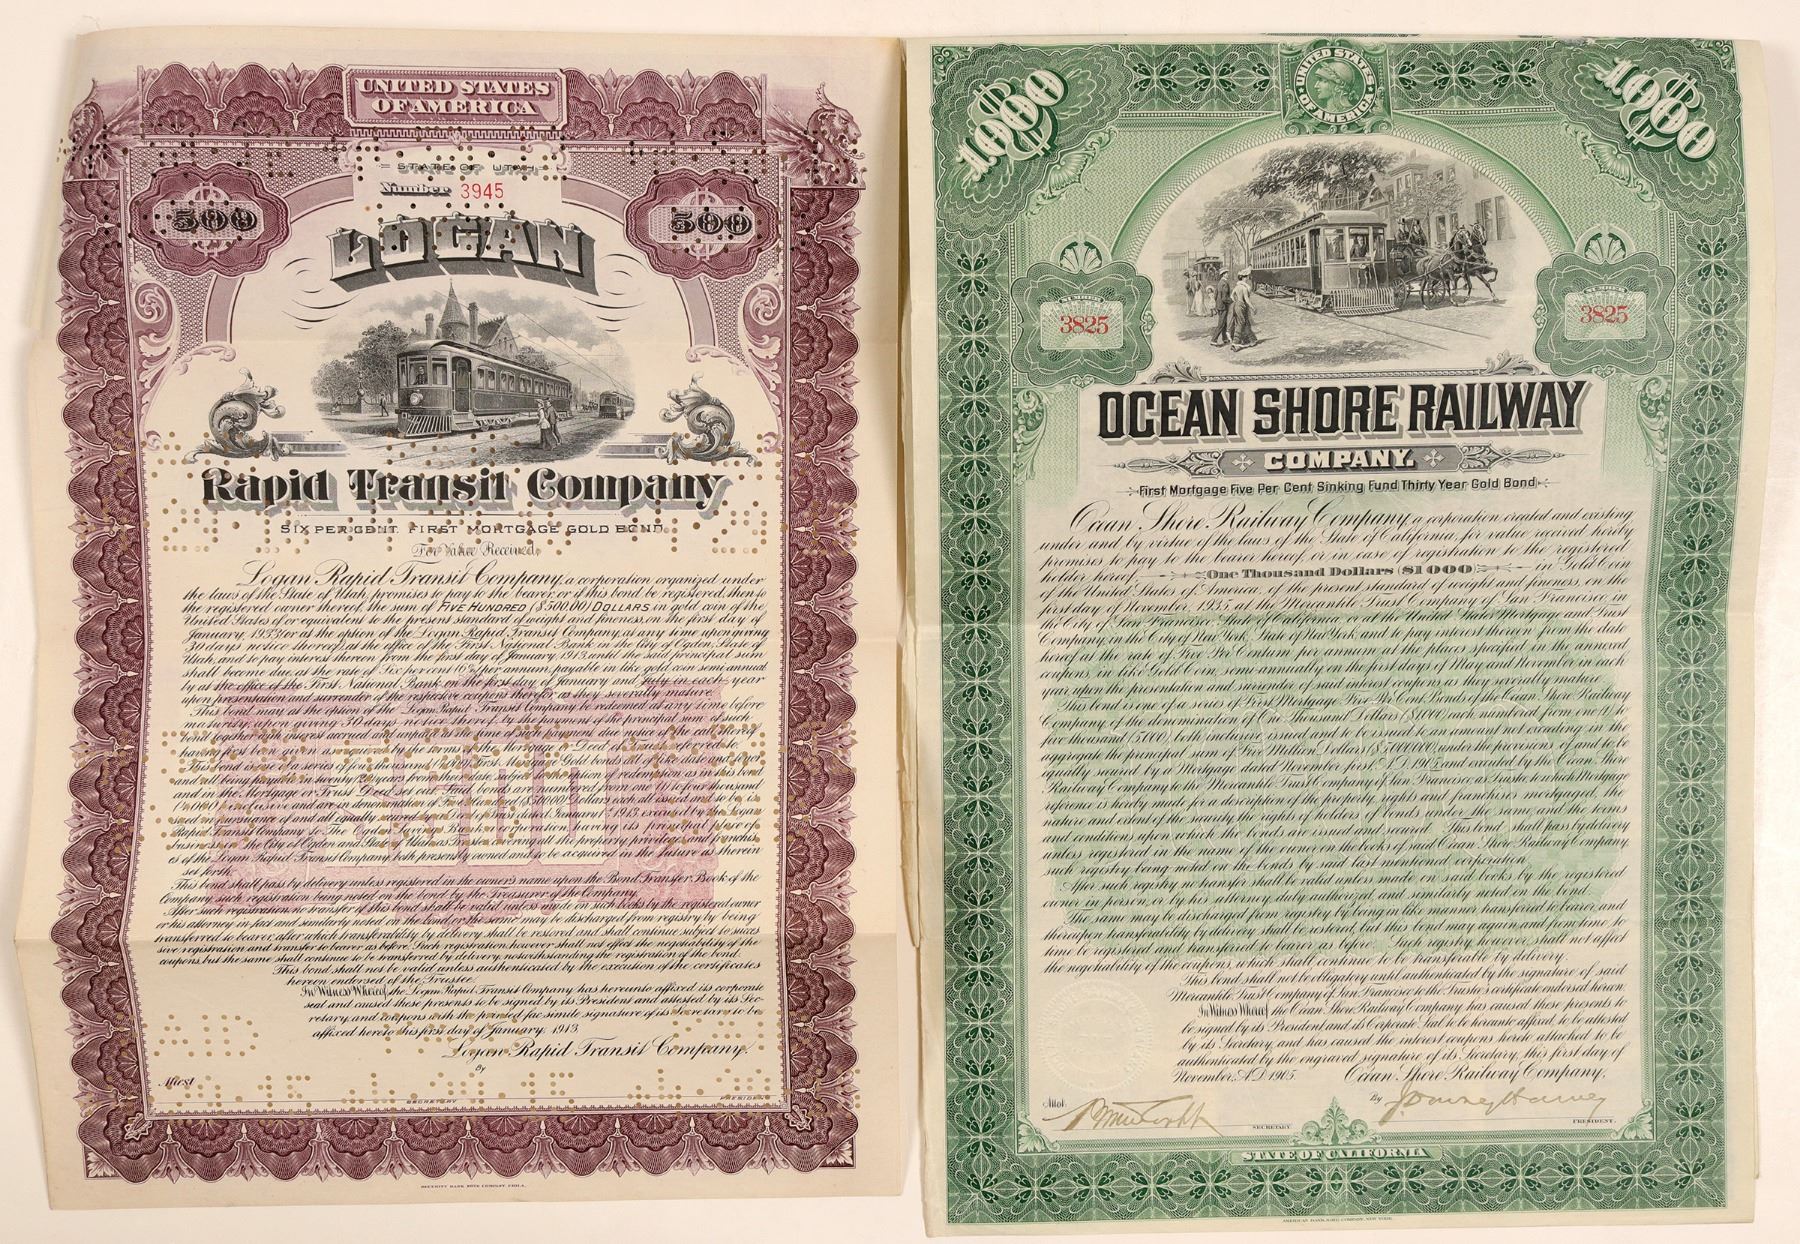 UNITED STATES
OF AMERICA
STATE OF UTAH
Number 3945
500 500
LOGAN
Rapid Transit Company
SIX PER CENT. FIRST MORTGAGE GOLD BOND.
For Value Received,
Logan Rapid Transit Company, a corporation organized under
the laws of the State of Utah, promises to pay to the bearer, or if this bond be registered, then to
the registered owner thereof, the sum of FIVE HUNDRED ($500.00) DOLLARS in gold coin of the
United States of or equivalent to the present standard of weight and fineness, on the first day of
January, 1933, or at the option of the Logan Rapid Transit Company at any time upon giving
30 days notice thereof, at the office of the First National Bank in the City of Ogden, State of
Utah, and to pay interest thereon from the first day of January, 1913, until the said principal sum
shall become due, at the rate of Six per cent (6%) per annum, payable in like gold coin semi-annual
ly at the office of the First National Bank on the first day of January and July in each year
upon presentation and surrender of the respective coupons therefor as they severally mature.
This bond may at the option of the Logan Rapid Transit Company be redeemed at any time before
maturity, upon giving 30 days notice thereof, by the payment of the principal sum of such
bond together with interest accrued and unpaid at the time of such payment due notice of the call thereof
having first been given as required by the terms of the Mortgage or Deed of Trust referred to.
This bond is one of a series of four thousand (4,000) First Mortgage Gold bonds all of like date and tenor
and all being payable in twenty (20) years from their date subject to the option of redemption as in this bond
and in the Mortgage or Trust Deed set out. Said bonds are numbered from one (1) to four thousand
(4,000) inclusive and are in denomination of Five Hundred ($500.00) Dollars each, all issued and to be is-
sued in pursuance of and all equally secured by a Deed of Trust dated January 1, 1913, executed by the Logan
Rapid Transit Company to The Ogden Savings Bank a corporation having its principal place of
business in the City of Ogden and State of Utah as Trustee covering all the property, privileges and franchis-
es of the Logan Rapid Transit Company both presently owned and to be acquired in the future as therein
set forth.
This bond shall pass by delivery unless registered in the owner's name upon the Bond Transfer Book of the
Company, such registration being noted on the bond by the Treasurer of the Company.
After such registration no transfer of this bond shall be valid unless made on such books by the registered owner
or his attorney in fact and similarly noted on the bond, or the same may be discharged from registry by being
transferred to bearer, after which transferability by delivery shall be restored and shall continue subject to succes
sive registration and transfer to bearer as before. Such registration, however shall not effect the negotiability of the
coupons, but the same shall continue to be transferred by delivery, notwithstanding the registration of the bond.
This bond shall not be valid unless authenticated by the execution of the certificates
hereon endorsed of the Trustee.
In Witness Whereof, the Logan Rapid Transit Company has hereunto affixed its corporate
seal and caused these presents to be signed by its President and attested by its Sec-
retary, and coupons with the printed fac-simile signature of its Secretary to be
affixed hereto this first day of January, 1913.
Logan Rapid Transit Company.
By
Attest
SECRETARY PRESIDENT
SECURITY BANK NOTE COMPANY, PHILA.
UNITED STATES
OF AMERICA
$1000 $1000
NUMBER NUMBER
3825 3825
OCEAN SHORE RAILWAY
COMPANY.
First Mortgage Five Per Cent Sinking Fund Thirty Year Gold Bond
Ocean Shore Railway Company, a corporation created and existing
under and by virtue of the laws of the State of California, for value received hereby
promises to pay to the bearer hereof, or in case of registration to the registered
holder hereof, One Thousand Dollars ($1000) in Gold Coin
of the United States of America, of the present standard of weight and fineness, on the
first day of November, 1935, at the Mercantile Trust Company of San Francisco, in
the City of San Francisco, State of California, or at the United States Mortgage and Trust
Company, in the City of New York, State of New York, and to pay interest thereon from the date
hereof at the rate of Five Per Centum per annum at the places specified in the annexed
coupons, in like Gold Coin, semi-annually, on the first days of May and November in each
year upon the presentation and surrender of said interest coupons as they severally mature.
This bond is one of a series of First Mortgage Five Per Cent Bonds of the Ocean Shore Railway
Company of the denomination of One Thousand Dollars ($1000) each, numbered from one (1) to
five thousand (5,000) both inclusive, issued and to be issued to an amount not exceeding in the
aggregate the principal sum of Five Million Dollars ($5,000,000), under the provisions of and to be
equally secured by a Mortgage dated November first, A.D. 1905, and executed by the Ocean Shore
Railway Company to the Mercantile Trust Company of San Francisco as Trustee to which Mortgage
reference is hereby made for a description of the property, rights and franchises mortgaged, the
nature and extent of the security, the rights of holders of bonds under the same, and the terms
and conditions upon which the bonds are issued and secured. This bond shall pass by delivery
unless registered in the name of the owner on the books of said Ocean Shore Railway Company,
such registry being noted on the bonds by said last mentioned corporation.
After such registry no transfer shall be valid unless made on said books by the registered
owner in person, or by his attorney, duly authorized, and similarly noted on the bond.
The same may be discharged from registry by being in like manner transferred to bearer, and
thereupon transferability by delivery shall be restored, but this bond may again, and from time to
time be registered and transferred to bearer as before. Such registry, however, shall not affect
the negotiability of the coupons, which shall continue to be transferable by delivery.
This bond shall not be obligatory until authenticated by the signature of said
Mercantile Trust Company of San Francisco to the Trustee's certificate endorsed hereon.
In Witness Whereof, the Ocean Shore Railway Company has caused these presents to
be signed by its President and its Corporate Seal to be hereunto affixed, to be attested
by its Secretary, and has caused the interest coupons hereto attached to be
authenticated by the engraved signature of its Secretary, this first day of
November, A.D. 1905. Ocean Shore Railway Company,
Attest: By
SECRETARY PRESIDENT.
STATE OF CALIFORNIA
AMERICAN BANK NOTE COMPANY, NEW YORK.